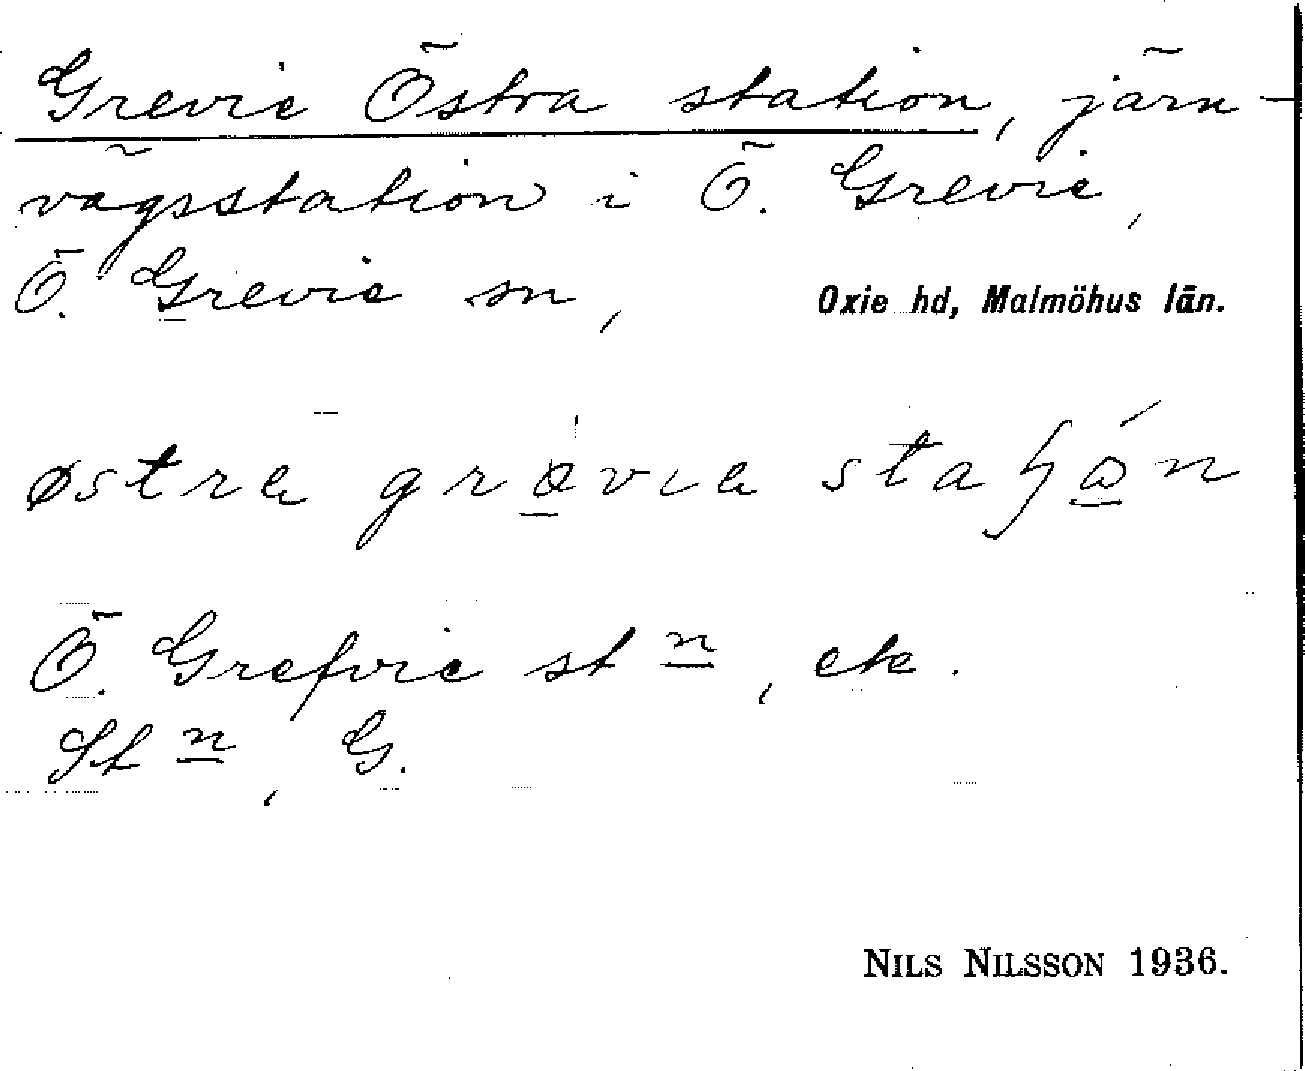 Grevie Östra station, järn-
vägsstation i Ö. Grevie,
Ö. Grevie sn, Oxie hd, Malmöhus län.
østra grævia staʃɷ́n
Ö. Grefvie stn, ek.
Stn, G.
NILS NILSSON 1936.